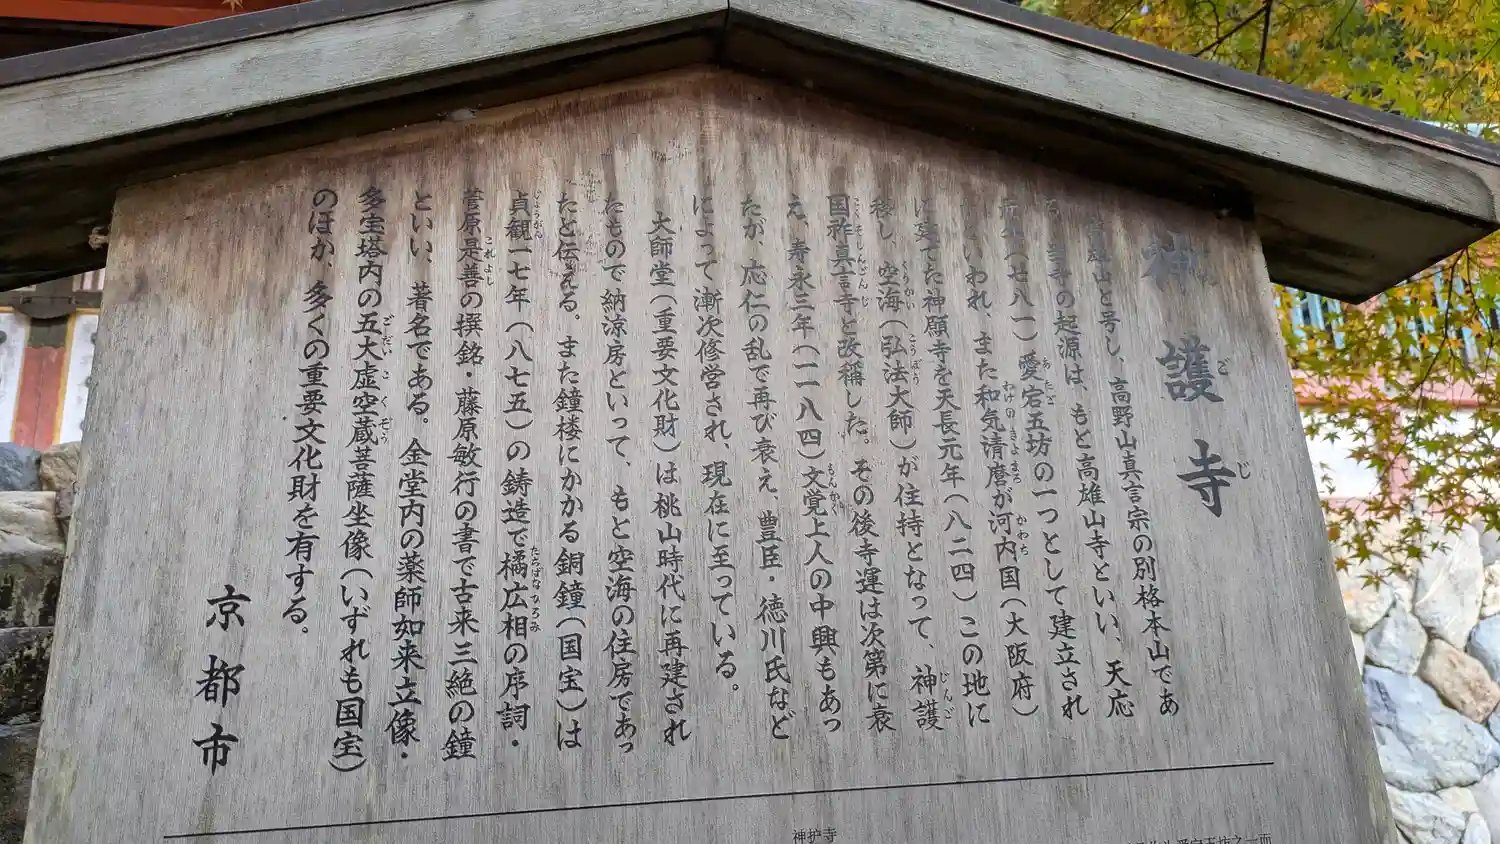 神護寺
高雄山と号し、高野山真言宗の別格本山であ
る。当寺の起源は、もと高雄山寺といい、天応
元年(七八一)愛宕五坊の一つとして建立され
いわれ、また和気清麿が河内国(大阪府)
に建てた神願寺を天長元年(八二四)この地に
移し、空海(弘法大師)が住持となって、神護
国祚真言寺と改稱した。その後寺運は次第に衰
え、寿永三年(一一八四)文覚上人の中興もあっ
たが、応仁の乱で再び衰え、豊臣・徳川氏など
によって漸次修営され、現在に至っている。
大師堂(重要文化財)は桃山時代に再建され
たもので納涼房といって、もと空海の住房であっ
たと伝える。また鐘楼にかかる銅鐘(国宝)は
貞観一七年(八七五)の鋳造で橘広相の序詞・
菅原是善の撰銘・藤原敏行の書で古来三絶の鐘
といい、著名である。金堂内の薬師如来立像・
多宝塔内の五大虚空蔵菩薩坐像(いずれも国宝)
のほか、多くの重要文化財を有する。
京都市
神护寺